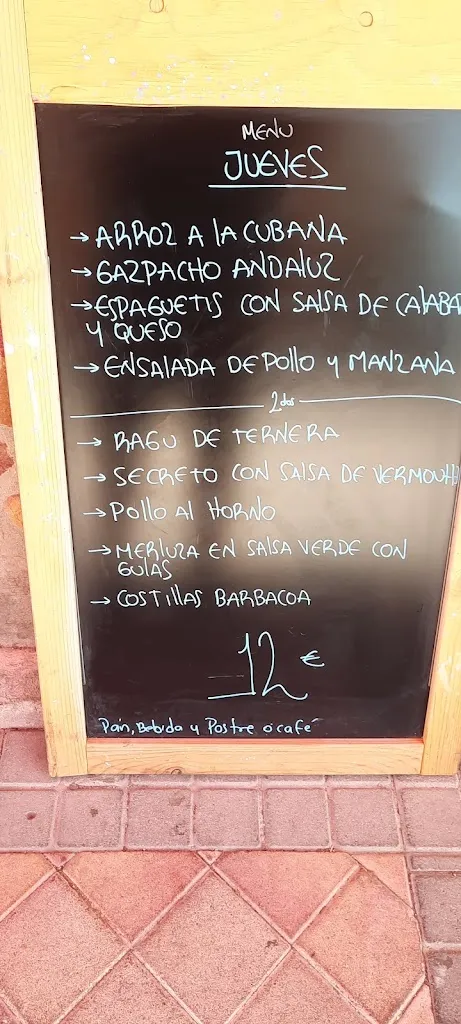 MENU
JUEVES
→ARROZ A LA CUBANA
→GAZPACHO ANDALUZ
→ESPAGUETIS CON SALSA DE CALABA
Y QUESO
→ENSALADA DE POLLO Y MANZANA
2dos
→ RAGU DE TERNERA
→ SECRETO CON SALSA DE VERMOUTH
→ POLLO AL HORNO
→MERLUZA EN SALSA VERDE CON
GULAS
→ COSTILLAS BARBACOA
12 €
Pan, Bebida y Postre o café